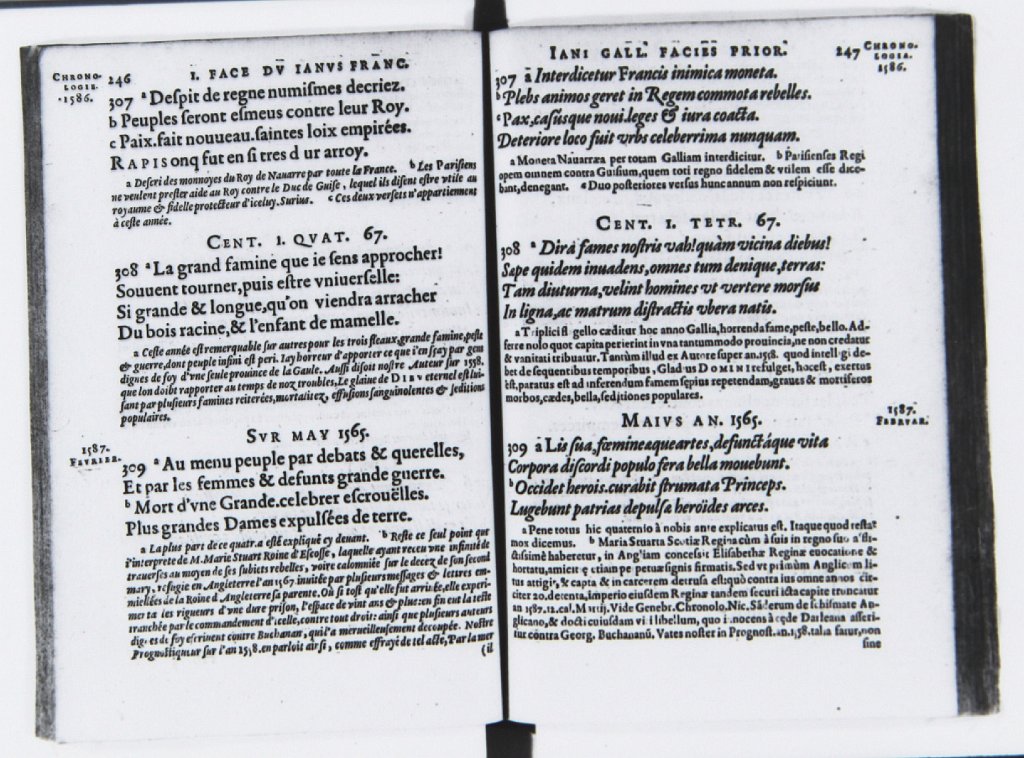 CHRONO-
LOGIE.
1586.
246
I. FACE DV IANVS FRANC.
307 a Despit de regne numismes decriez.
b Peuples seront esmeus contre leur Roy.
c Paix.fait nouueau.saintes loix empirées.
RAPIS onq fut en si tres d ur arroy.
a Descri des monnoyes du Roy de Nauarre par toute la France. b Les Parisiens
ne veulent prester aide au Roy contre le Duc de Guise, lequel ils disent estre vtile au
royaume & fidelle protecteur d'iceluy. Surius. c Ces deux versets n'appartiennent
à ceste année.
CENT. I. QVAT. 67.
308 a La grand famine que ie sens approcher!
Souuent tourner, puis estre vniuerselle:
Si grande & longue, qu'on viendra arracher
Du bois racine, & l'enfant de mamelle.
a Ceste année est remarquable sur autres pour les trois fleaux, grande famine, peste
& guerre, dont peuple infini est peri. I'ay horreur d'apporter ce que i'en sçay par gens
dignes de foy d'vne seule prouince de la Gaule. Aussi disoit nostre Auteur sur 1558.
que lon doibt rapporter au temps de noz troubles, Le glaiue de DIEV eternel est lui-
sant par plusieurs famines reiterées, mortalitez, effusions sanguinolentes & seditions
populaires.
SVR MAY 1565.
1587.
FEVRIER.
309 a Au menu peuple par debats & querelles,
Et par les femmes & defunts grande guerre.
b Mort d'vne Grande.celebrer escrouëlles.
Plus grandes Dames expulsées de terre.
a La plus part de ce quatra est expliqué cy deuant. b Reste ce seul point que
i'interprete de M. Marie Stuart Roine d'Escosse, laquelle ayant receu vne infinité de
trauerses au moyen de ses subiets rebelles, voire calomniée sur le decez de son second
mary, refugie en Angleterre l'an 1567 inuitée par plusieurs messages & lettres em-
miellées de la Roine d'Angleterre sa parente. Où si tost qu'elle fut arriuée, elle experi-
menta les rigueurs d'vne dure prison, l'espace de vint ans & plus: en fin eut la teste
tranchée par le commandement d'icelle, contre tout droit: ainsi que plusieurs auteurs
dignes de foy escriuent contre Buchanan, qui l'a merueilleusement decoupée. Nostre
Prognostiqueur sur l'an 1558. en parloit ainsi, comme effrayé de tel acte, Par la mer
(il
IANI GALL. FACIES PRIOR.
247
CHRONO-
LOGIA.
1586.
307 a Interdicetur Francis inimica moneta.
b Plebs animos geret in Regem commota rebelles.
c Pax, casúsque noui.leges & iura coacta.
Deteriore loco fuit vrbs celeberrima nunquam.
a Moneta Nauarræa per totam Galliam interdicitur. b Parisienses Regi
opem omnem contra Guisium, quem toti regno fidelem & vtilem esse dice-
bant, denegant. c Duo posteriores versus hunc annum non respiciunt.
CENT. I. TETR. 67.
308 a Dira fames nostris vah! quàm vicina diebus!
Sæpe quidem inuadens, omnes tum denique, terras:
Tam diuturna, velint homines vt vertere morsus
In ligna, ac matrum distractis vbera natis.
a Triplici flagello cæditur hoc anno Gallia, horrenda fame, peste, bello. Ad-
ferre nolo quot capita perierint in vna tantummodo prouincia, ne non credatur
& vanitati tribuatur. Tantùm illud ex Autore super an. 1558. quod intelligi de-
bet de sequentibus temporibus, Gladius DOMINI refulget, hoc est, exertus
est, paratus est ad inferendum famem sępius repetendam, graues & mortiferos
morbos, cædes, bella, seditiones populares.
MAIVS AN. 1565.
1587.
FEBRVAR.
309 a Lis sua, fœmineæque artes, defunctáque vita
Corpora discordi populo fera bella mouebunt.
b Occidet herois.curabit strumata Princeps.
Lugebunt patrias depulsæ heroïdes arces.
a Pene totus hic quaternio à nobis ante explicatus est. Itaque quod restat
mox dicemus. b Maria Stuarta Scotiæ Regina cùm à suis in regno suo
haberetur, in Angliam concessit Elisabethæ Reginæ euocatione &
hortatu, amicitiæ etiam perpetuæ signis firmatis. Sed vt primùm Anglicum li-
tus attigit, & capta & in carcerem detrusa estquò contra ius omne annos cir-
citer 20. detenta, imperio eiusdem Reginæ tandem securi icta capite truncatur
an 1587. 12. cal. Martij. Vide Genebr. Chronolo. Nic. Sāderum de schismate An-
glicano, & docti cuiusdam viri libellum, quo innocens à cęde Darleana asseri-
tur contra Georg. Buchananū. Vates noster in Prognost. an. 1558. talia fatur, non
sine